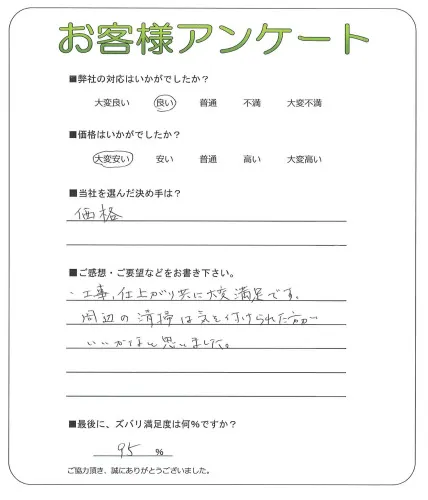 お客様アンケート
■弊社の対応はいかがでしたか?
大変良い 良い 普通 不満 大変不満
■価格はいかがでしたか?
大変安い 安い 普通 高い 大変高い
■当社を選んだ決め手は?
価格
■ご感想・ご要望などをお書き下さい。
・工事、仕上がり共に大変満足です。
周辺の清掃は気を付けられた方が
いいかなと思いました。
■最後に、ズバリ満足度は何%ですか?
95 %
ご協力頂き、誠にありがとうございました。